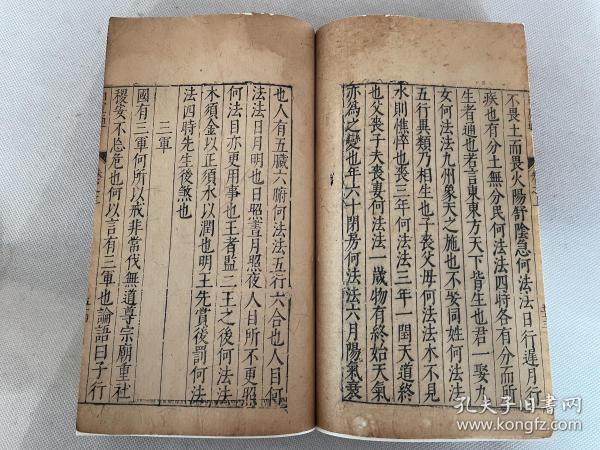 不畏土而畏火陽舒陰急何法法日行遲月行
疾也有分土無分民何法法四時各有分而所
生者通也若言東東方天下皆生也君一娶九
女何法法九州象天之施也不娶同姓何法法
五行異類乃相生也子喪父毋何法法木不見
水則憔悴也喪三年何法法三年一閏天道終
也父喪子夫喪妻何法法一歲物有終始天氣
亦為之變也年六十閉房何法法六月陽氣衰
也人有五臟六腑何法法五行六合也人目何
法法日月明也日照晝月照夜人目所不更照
何法目亦更用事也王者監二王之後何法法
木須金以正須水以潤也明王先賞後罰何法
法四時先生後煞也
三軍
國有三軍何所以戒非常伐無道尊宗廟重社
稷安不忘危也何以言有三軍也論語曰子行
孔夫子旧书网
book.kongfz.com